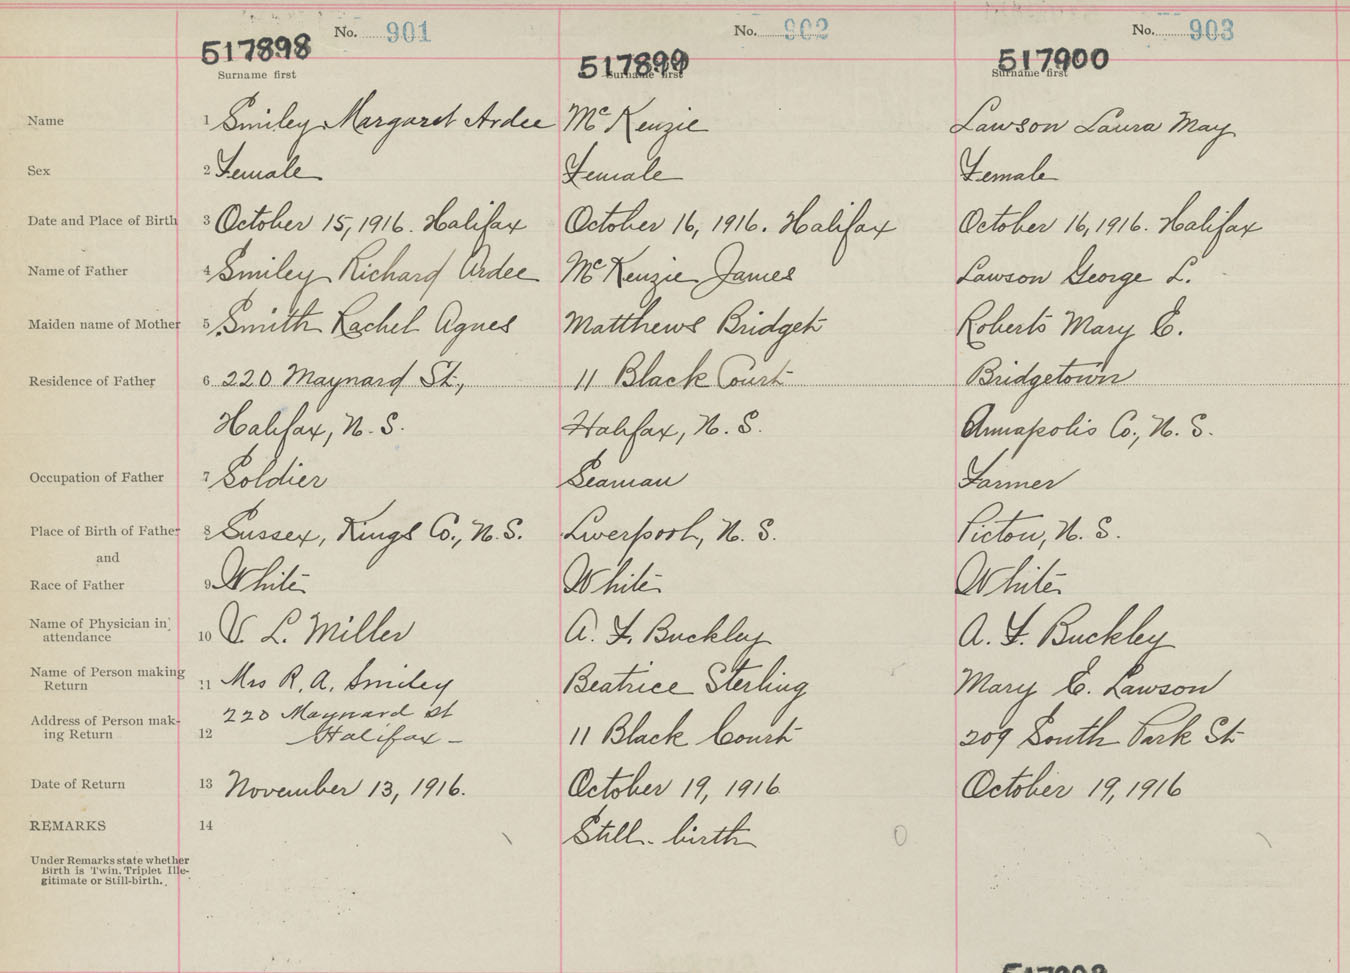 No. 901
No. 902
No. 903
517898
517899
517900
Surname first
Surname first
Surname first
Name 1 Smiley Margaret Ardee McKenzie Lawson Laura May
Sex 2 Female Female Female
Date and Place of Birth 3 October 15, 1916. Halifax October 16, 1916. Halifax October 16, 1916. Halifax
Name of Father 4 Smiley Richard Ardee McKenzie James Lawson George L.
Maiden name of Mother 5 Smith Rachel Agnes Matthews Bridget Roberts Mary E.
Residence of Father 6 220 Maynard St., 11 Black Court Bridgetown
Halifax, N.S. Halifax, N.S. Annapolis Co., N.S.
Occupation of Father 7 Soldier Seaman Farmer
Place of Birth of Father 8 Sussex, Kings Co., N.S. Liverpool, N.S. Pictou, N.S.
and
Race of Father 9 White White White
Name of Physician in
attendance 10 V. L. Miller A. F. Buckley A. F. Buckley
Name of Person making
Return 11 Mrs R. A. Smiley Beatrice Sterling Mary E. Lawson
Address of Person mak- 220 Maynard St
ing Return 12 Halifax - 11 Black Court 209 South Park St
Date of Return 13 November 13, 1916. October 19, 1916 October 19, 1916
REMARKS 14 Still-birth
Under Remarks state whether
Birth is Twin, Triplet Ille-
gitimate or Still-birth.